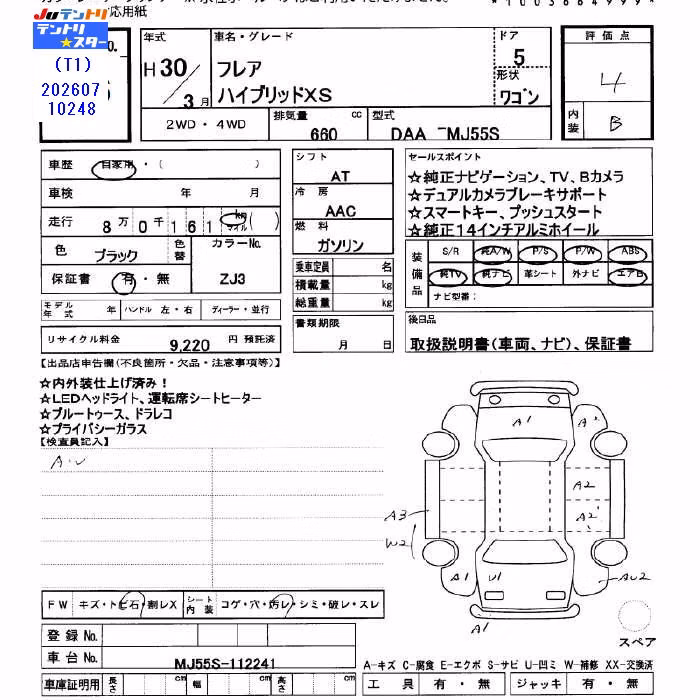 応用紙
JUテントリ
テントリ
★スター
(T1)
202607
10248
年式
H30/3月
車名・グレード
フレア
ハイブリッドXS
ドア
5
形状
ワゴン
評価点
4
内装
B
2WD・4WD
排気量
660 cc
型式
DAA-MJ55S
車歴 自家用・( )
車検 年 月
走行 8万0千161 km マイル ( )
色 ブラック 色替 カラーNo. ZJ3
保証書 有・無
モデル年式 年 ハンドル 左・右 ディーラー・並行
リサイクル料金 9,220 円 預託済
シフト
AT
冷房
AAC
燃料
ガソリン
乗車定員 名
積載量 kg
総重量 kg
書類期限
月 日
セールスポイント
☆純正ナビゲーション、TV、Bカメラ
☆デュアルカメラブレーキサポート
☆スマートキー、プッシュスタート
☆純正14インチアルミホイール
装備品
S/R 純A/W P/S P/W ABS
純TV 純ナビ 革シート 外ナビ エアB
ナビ型番:
後日品
取扱説明書(車両、ナビ)、保証書
【出品店申告欄(不良箇所・欠品・注意事項等)】
☆内外装仕上げ済み!
☆LEDヘッドライト、運転席シートヒーター
☆ブルートゥース、ドラレコ
☆プライバシーガラス
【検査員記入】
A・U
A1
A2
A2
A2
A3
W2
A1
U1
AU2
A1
スペア
FW キズ・トビ石・割レX シート内装 コゲ・穴・汚レ・シミ・破レ・スレ
登録No.
車台No. MJ55S-112241
車庫証明用 長さ cm 幅 cm 高さ cm
A-キズ C-腐食 E-エクボ S-サビ U-凹ミ W-補修 XX-交換済
工具 有・無 ジャッキ 有・無